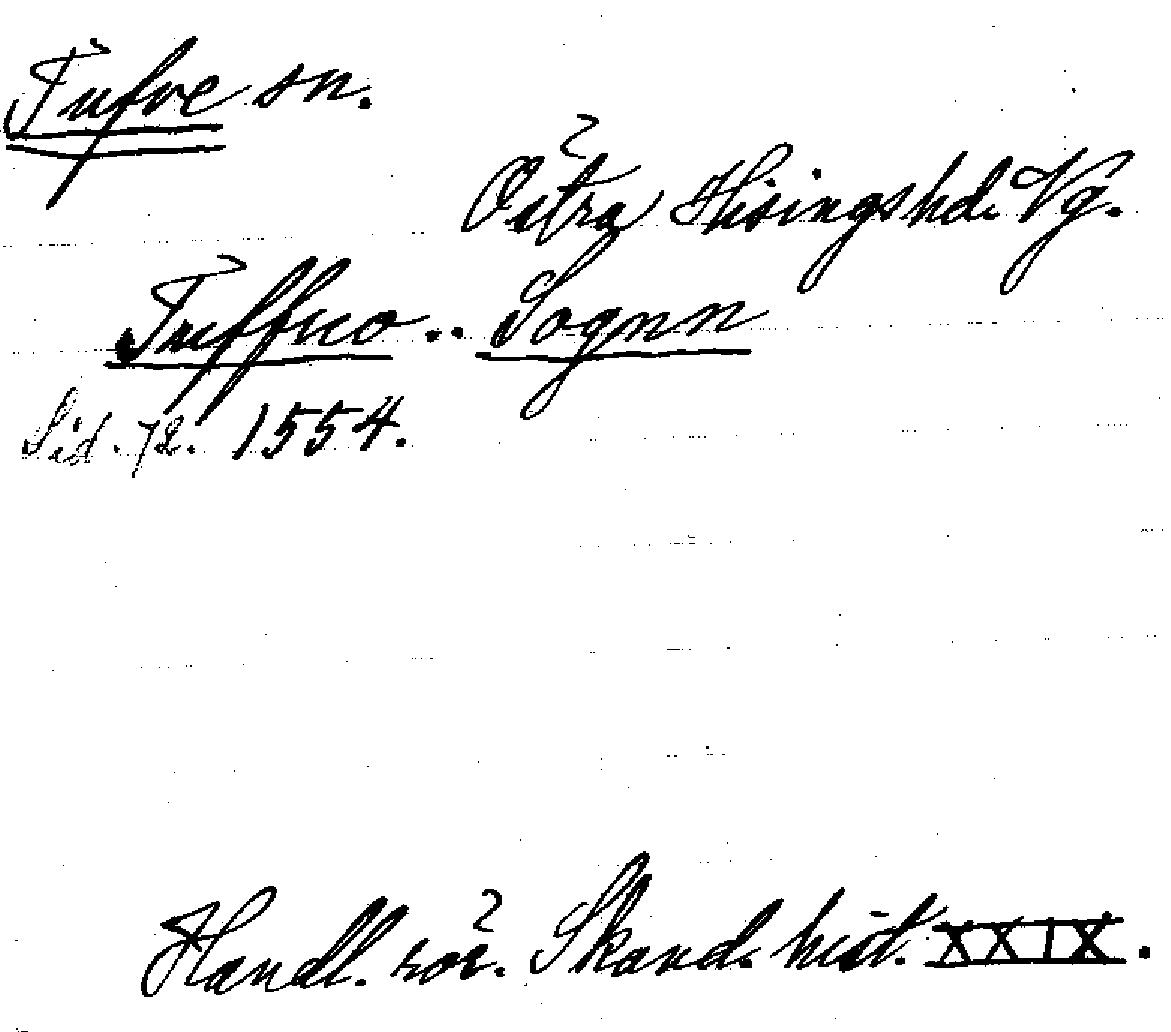 Tufve sn.
Östra Hisings hd. Vg.
Tuffuo .. Sognn
Sid. 72. 1554.
Handl. rör. Skand. hist. XXIX.